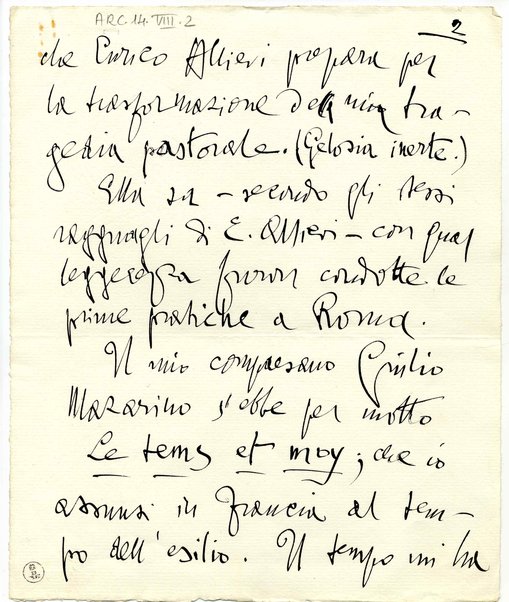 ARC. 14. VIII. 2
2
che Enrico Alfieri prepara per
la trasformazione della mia tra-
gedia pastorale. (Gelosia inerte.)
Ella sa – secondo gli stessi
ragguagli di E. Alfieri – con qual
leggerezza furon condotte le
prime pratiche a Roma.
Il mio compaesano Giulio
Mazarino s'ebbe per motto
Le tems et moy; che io
assunsi in Francia al tem-
po dell'esilio. Il tempo mi ha